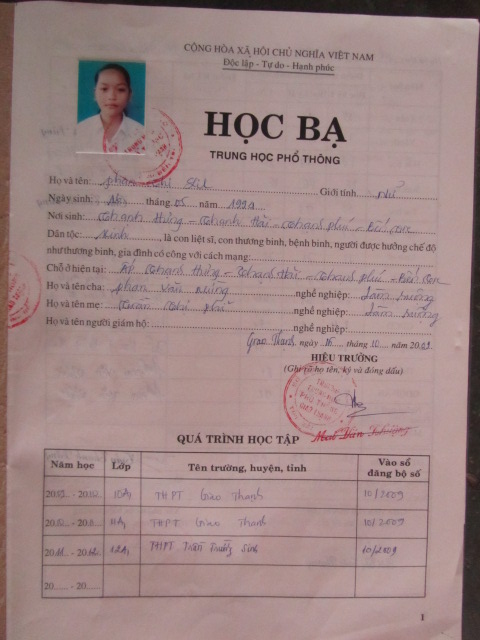 CỘNG HÒA XÃ HỘI CHỦ NGHĨA VIỆT NAM
Độc lập - Tự do - Hạnh phúc
HỌC BẠ
TRUNG HỌC PHỔ THÔNG
Họ và tên: Phan Thị Giới tính: Nữ
Ngày sinh: tháng 05 năm 199
Nơi sinh: Thạnh Hưng - Thạnh Hải - Thạnh Phú - Bến Tre
Dân tộc: Kinh, là con liệt sĩ, con thương binh, bệnh binh, người được hưởng chế độ
như thương binh, gia đình có công với cách mạng:
Chỗ ở hiện tại: Ấp Thạnh Hưng - Thạnh Hải - Thạnh Phú - Bến Tre
Họ và tên cha: Phan Văn nghề nghiệp: Làm ruộng
Họ và tên mẹ: Trần Thị nghề nghiệp: Làm ruộng
Họ và tên người giám hộ: nghề nghiệp:
Giao Thạnh, ngày 15 tháng 10 năm 2009
HIỆU TRƯỞNG
(Ghi rõ họ tên, ký và đóng dấu)
Mai Văn
QUÁ TRÌNH HỌC TẬP
Năm học Lớp Tên trường, huyện, tỉnh Vào sổ đăng bộ số
2009 - 2010 10A1 THPT Giao Thạnh 10/2009
2010 - 2011 11A1 THPT Giao Thạnh 10/2009
2011 - 2012 12A1 THPT Trần Trường Sinh 10/2009
20...... - 20......
1